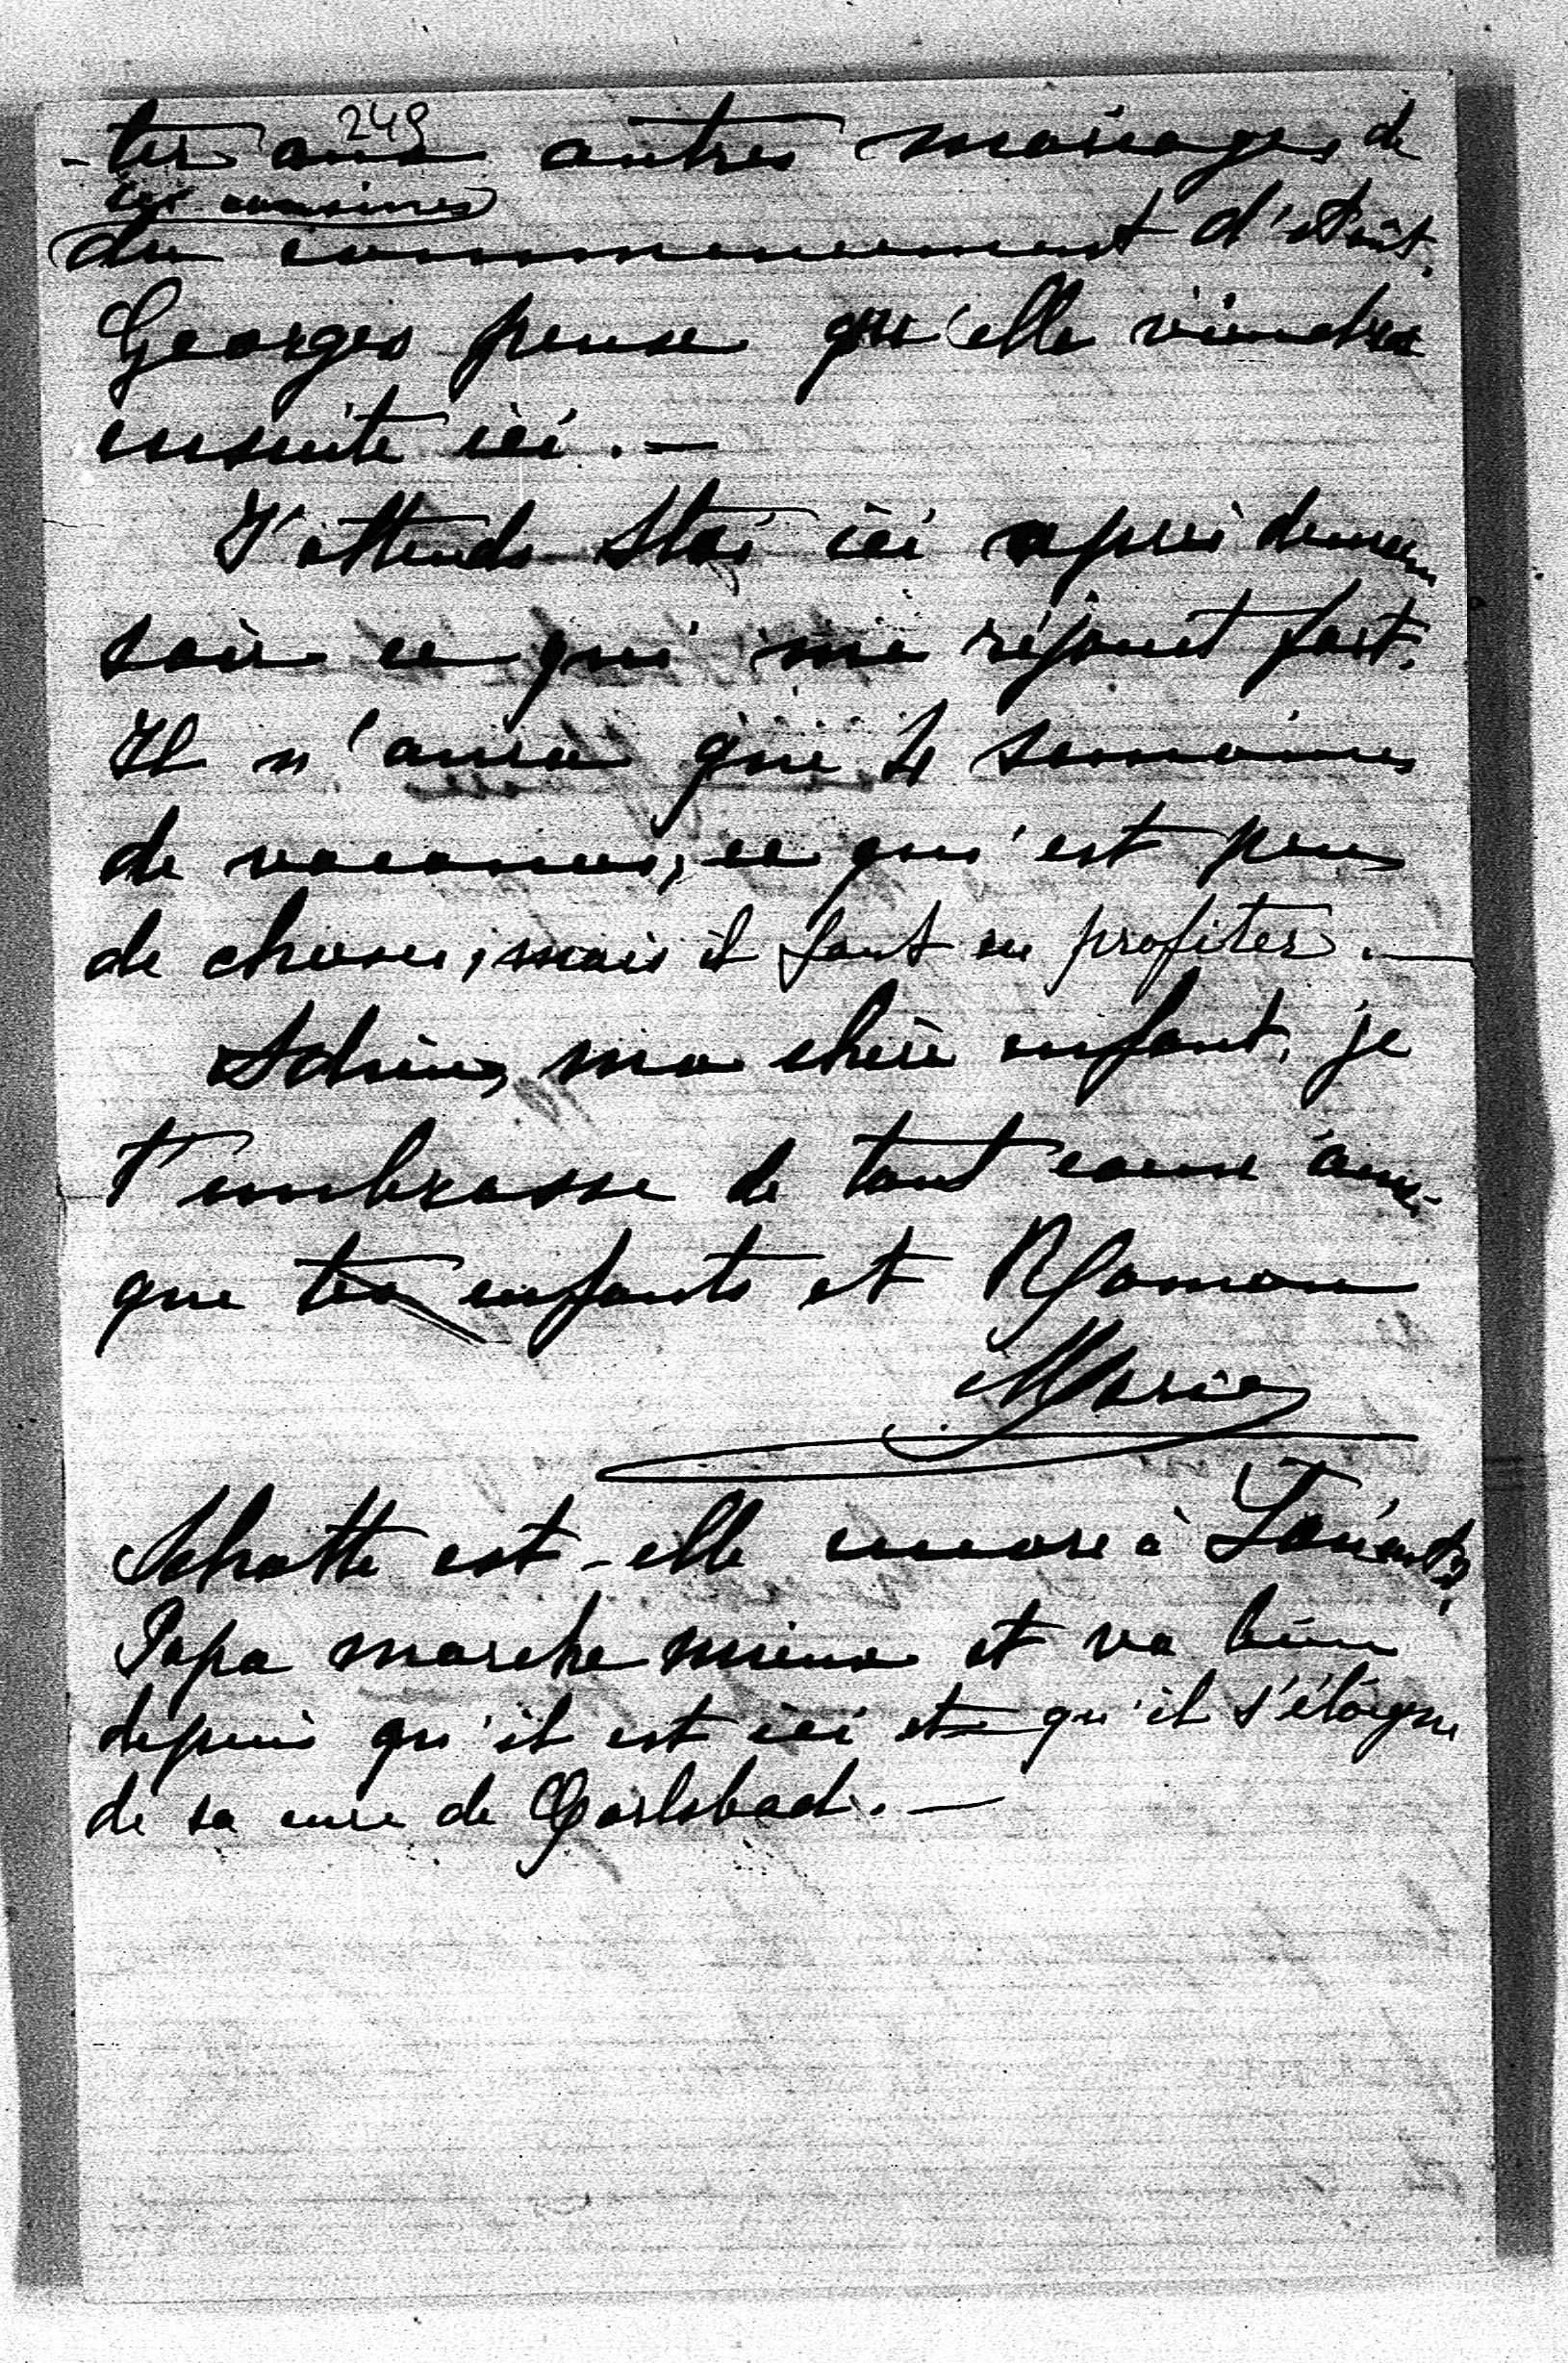 249
-ter aux autres mariages de
ses cousines
du commencement d'Août.
Georges pense qu'elle viendra
ensuite ici. —
J'attends Stai ici après demain
soir ce qui me réjouit fort.
Il n'aura que 4 semaines
de vacances, ce qui est peu
de chose, mais il faut en profiter. —
Adieu, ma chère enfant, je
t'embrasse de tout coeur ainsi
que tes enfants et Maman
Marie
est-elle encore à Lorient?
Papa marche mieux et va bien
depuis qu'il est ici et qu'il s'éloigne
de sa cure de Carlsbad. —